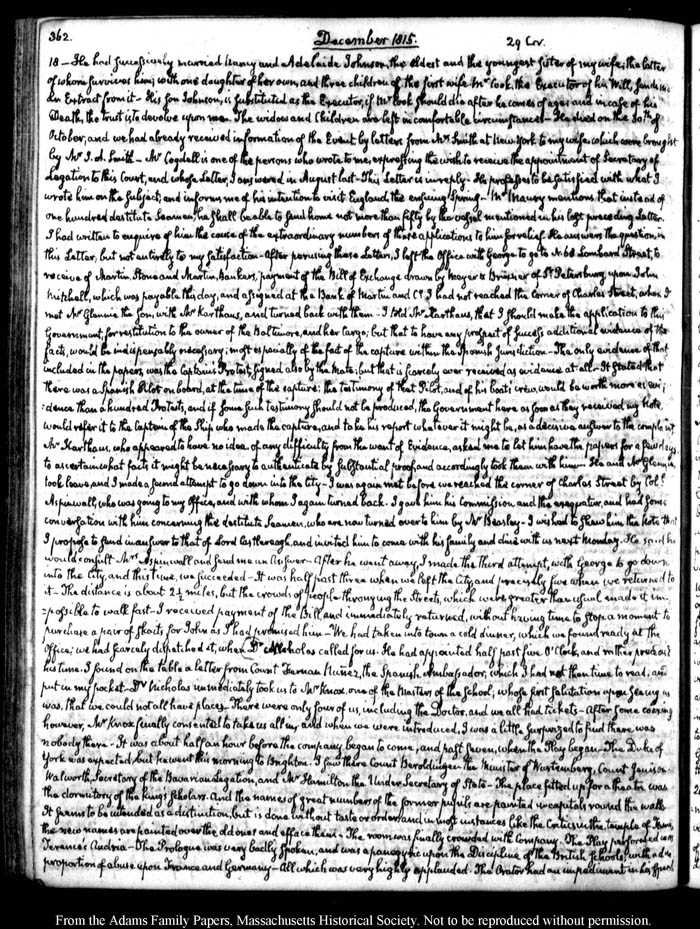 362.
December 1815.
29 Cor.
18 – He had successively married Nancy and Adelaide Johnson, the eldest and the youngest sister of my wife; the latter
of whom survives him; with one daughter of her own, and three children of the first wife. Mr Cook, the Executor of his Will, sends me
an Extract from it – His Son Johnson, is substituted as the Executor, if Mr Cook should die after he comes of age; and in case of his
Death, the trust is to devolve upon me. The widow and Children are left in comfortable circumstances – He died on the 30th of
October, and we had already received information of the Event by letters from Mr Smith at New York to my wife, which were brought
by Mr J. A. Smith – Mr Cogdell is one of the persons who wrote to me, expressing the wish to receive the appointment of Secretary of
Legation to this Court, and whose Letter, I answered in August last – This Letter is in reply – He professes to be satisfied with what I
wrote him on the subject, and informs me of his intention to visit England, the ensuing Spring – Mr Maury mentions that instead of
one hundred destitute Seamen, he shall be able to send home not more than fifty by the vessel mentioned in his last preceding Letter.
I had written to enquire of him the cause of the extraordinary numbers of these applications to him for relief. He answers the question in
this Letter, but not entirely to my satisfaction – After perusing these Letters, I left the Office with George to go to N. 68 Lombard Street, to
receive of Martin, Stone and Martin, Bankers, payment of the Bill of Exchange drawn by Meyer & Bruxner of St Petersburg, upon John
Mitchell, which was payable this day, and assigned at the Bank of Martin and Co. I had not reached the corner of Charles Street, when I
met Mr Glennie the Son, with Mr Karthaus, and turned back with them – I told Mr Karthaus, that I should make the application to this
Government, for restitution to the owner of the Baltimore, and her Cargo; but that to have any prospect of success additional evidence of the
facts, would be indispensably necessary; most especially of the fact of the capture within the Spanish Jurisdiction – The only evidence of that
included in the papers, was the Captain's Protest, signed also by the Mate; but that is scarcely ever received as evidence at all – It stated that
there was a Spanish Pilot on board, at the time of the capture: the testimony of that Pilot, and of his boat's crew, would be worth more as evi-
:dence than a hundred Protests, and if some such testimony should not be produced, the Government here as soon as they received my Note
would refer it to the Captain of the Ship who made the capture, and take his report whatever it might be, as a decisive answer to the complaint
Mr Karthaus, who appeared to have no idea of any difficulty from the want of Evidence, asked me to let him have the papers for a few days,
to ascertain what facts it might be necessary to authenticate by substantial proof, and accordingly took them with him – He and Mr Glennie,
took leave, and I made a second attempt to go down into the City – I was again met before we reached the corner of Charles Street by Coll
Aspinwall, who was going to my Office, and with whom I again turned back. I gave him his Commission and the exequatur, and had some
conversation with him concerning the destitute Seamen, who are now turned over to him by Mr Beasley – I wished to shew him the Note that
I propose to send in answer to that of Lord Castlereagh, and invited him to come with his family and dine with us next Monday. He said he
would consult Mrs Aspinwall and send me an Answer – After he went away, I made the third attempt, with George to go down
into the City, and this time, we succeeded – It was half past three when we left the City and precisely five when we returned to
it – The distance is about 2½ miles, but the crowds of people thronging the Streets, which were greater than usual made it im-
:possible to walk fast – I received payment of the Bill and immediately returned, without having time to stop a moment to
purchase a pair of skaits for John as I had promised him – We had taken into town a cold dinner, which we found ready at the
Office; we had scarcely dispatched it, when Dr Nicholas called for us. He had appointed half past five O'Clock, and rather preceded
his time. I found on the table a letter from Count Fernan Nuñez, the Spanish Ambassador, which I had not then time to read, and
put in my pocket – Dr Nicholas immediately took us to Mr Knox, one of the Masters of the School, whose first salutation upon seeing us
was, that we could not all have places – There were only four of us, including the Doctor, and we all had tickets – After some coaxing
however, Mr Knox finally consented to take us all in, and when we were introduced, I was a little surprized to find there was
nobody there – It was about half an hour before the company began to come, and past seven, when the Play began – The Duke of
York was expected but he went this morning to Brighton. I saw there Count Beroldingen the Minister of Wurtemberg, Count Jenison
Walworth, Secretary of the Bavarian Legation, and Mr Hamilton the Under Secretary of State – The place fitted up for a theatre was
the dormitory of the King's Scholars. And the names of great numbers of the former pupils are painted in capitals round the walls
It seems to be intended as a distinction, but is done without taste or order and in most instances like the Critics in the temple of Fame
the new names are painted over the old ones and efface them – The room was finally crowded with company. The Play performed was
Terence's Andria – The Prologue was very badly spoken, and was a panegyric upon the Discipline of the British Schools, with a due
proportion of abuse upon France and Germany – All which was very highly applauded. The Orator had an impediment in his speech
From the Adams Family Papers, Massachusetts Historical Society. Not to be reproduced without permission.